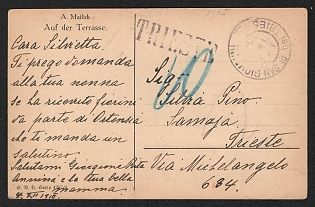 A. Mailick
Auf der Terrasse.
Cara Silvietta
Ti prego domanda
alla tua nonna
se ha ricevuto fiorini
da parte di Ortensia
che ti manda un
salutino
Salutami Giorgione
e la tua bella
mamma
TRIESTE
40
Sig.
Silvia Pino
Samaja
Trieste
Via Michelangelo
634.